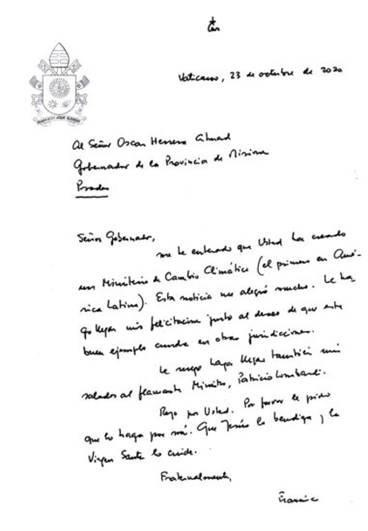 Vaticano, 23 de octubre de 2020
Al Señor Oscar Herrera Ahuad
Gobernador de la Provincia de Misiones
Posadas
Señor Gobernador,
me he enterado que Usted ha creado
un Ministerio de Cambio Climático (el primero en Amé-
rica Latina). Esta noticia me alegró mucho. Le ha-
go llegar mis felicitaciones junto al deseo de que este
buen ejemplo cunda en otras jurisdicciones.
Le ruego haga llegar también mis
saludos al flamante Ministro, Patricio Lombardi.
Rezo por Usted. Por favor le pido
que lo haga por mí. Que Jesús lo bendiga y la
Virgen Santa lo cuide.
Fraternalmente,